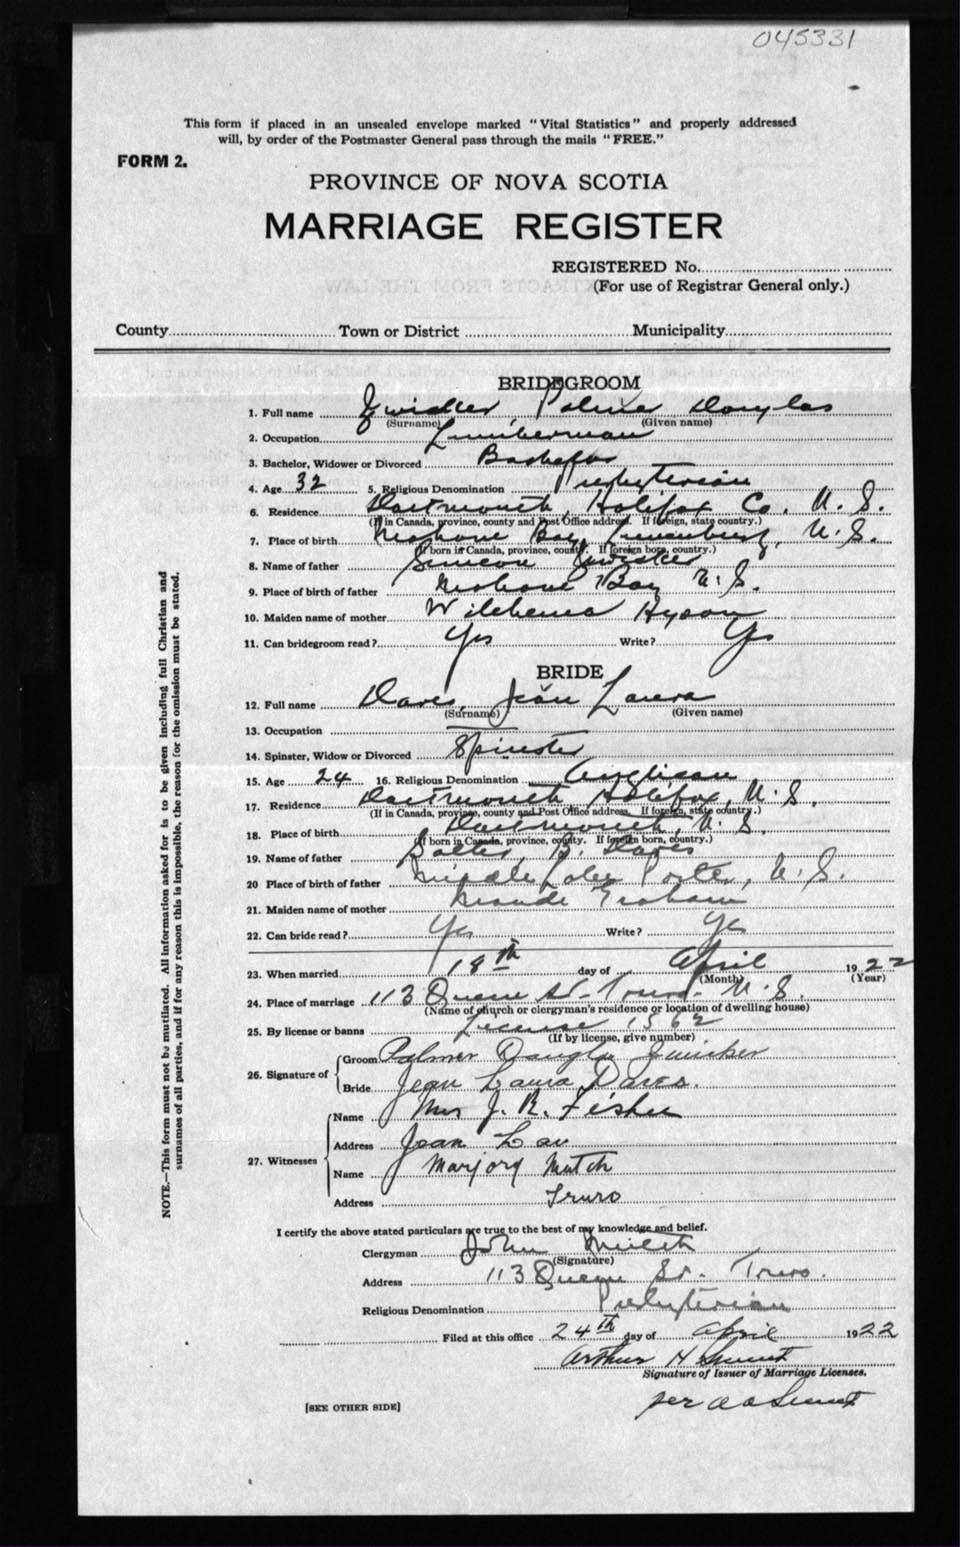 045331
This form if placed in an unsealed envelope marked "Vital Statistics" and properly addressed
will, by order of the Postmaster General pass through the mails "FREE."
FORM 2.
PROVINCE OF NOVA SCOTIA
MARRIAGE REGISTER
REGISTERED No.
(For use of Registrar General only.)
County Town or District Municipality
BRIDEGROOM
1. Full name Zwicker, Palmer Douglas
(Surname) (Given name)
2. Occupation Lumberman
3. Bachelor, Widower or Divorced Bachelor
4. Age 32 5. Religious Denomination Presbyterian
6. Residence Dartmouth, Halifax Co. N. S.
(If in Canada, province, county and Post Office address. If foreign, state country.)
7. Place of birth Mahone Bay, Lunenburg, N. S.
(If born in Canada, province, county. If foreign born, country.)
8. Name of father Simeon Zwicker
9. Place of birth of father Mahone Bay N. S.
10. Maiden name of mother Hyson
11. Can bridegroom read? Yes Write? Yes
BRIDE
12. Full name Dares, Jean Laura
(Surname) (Given name)
13. Occupation
14. Spinster, Widow or Divorced Spinster
15. Age 24 16. Religious Denomination Anglican
17. Residence Dartmouth Halifax, N. S.
(If in Canada, province, county and Post Office address. If foreign, state country.)
18. Place of birth Dartmouth, N. S.
(If born in Canada, province, county. If foreign born, country.)
19. Name of father B. Dares
20 Place of birth of father Middle N. S.
21. Maiden name of mother Maude Graham
22. Can bride read? Yes Write? Yes
23. When married 18th day of April 1922
(Month) (Year)
24. Place of marriage 113 Queen St. Truro. N. S.
(Name of church or clergyman's residence or location of dwelling house)
25. By license or banns License 1562
(If by license, give number)
26. Signature of Groom Palmer Douglas Zwicker
Bride Jean Laura Dares.
27. Witnesses Name Mrs J. R. Fisher
Address Jean
Name Marjory Mutch
Address Truro
I certify the above stated particulars are true to the best of my knowledge and belief.
Clergyman John Mutch
(Signature)
Address 113 Queen St. Truro.
Religious Denomination Presbyterian
Filed at this office 24th day of April 1922
Arthur H
Signature of Issuer of Marriage Licenses.
per
[SEE OTHER SIDE]
NOTE.—This form must not be mutilated. All information asked for is to be given including full Christian and
surnames of all parties, and if for any reason this is impossible, the reason for the omission must be stated.